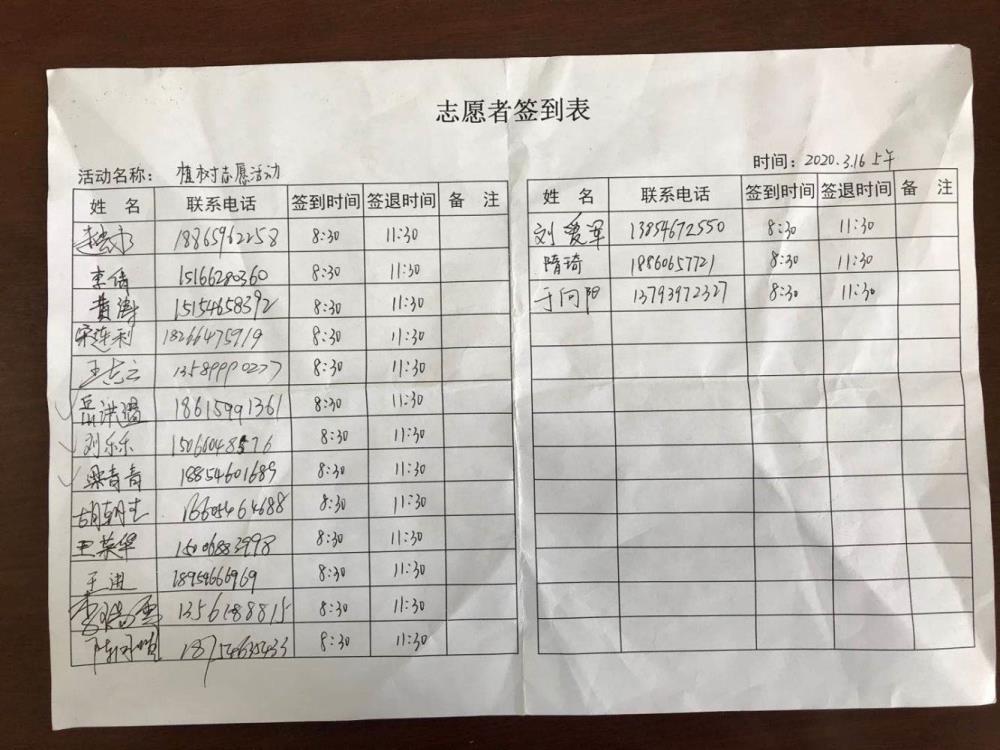 志愿者签到表
活动名称： 植树志愿活动
时间：2020.3.16上午
姓 名 联系电话 签到时间 签退时间 备 注
18865962258 8:30 11:30
李倩 15166280360 8:30 11:30
黄涛 15154658392 8:30 11:30
宋连利 18266475919 8:30 11:30
王志云 13589990277 8:30 11:30
岳洪 18615991361 8:30 11:30
刘乐乐 15066048576 8:30 11:30
梁青青 18854601689 8:30 11:30
胡朝 16605464688 8:30 11:30
王英华 15006883998 8:30 11:30
王进 18954666969 8:30 11:30
8:30 11:30
陈 18754635433 8:30 11:30
姓 名 联系电话 签到时间 签退时间 备 注
刘爱军 13854672550 8:30 11:30
隋琦 18860657721 8:30 11:30
于向阳 13793972327 8:30 11:30